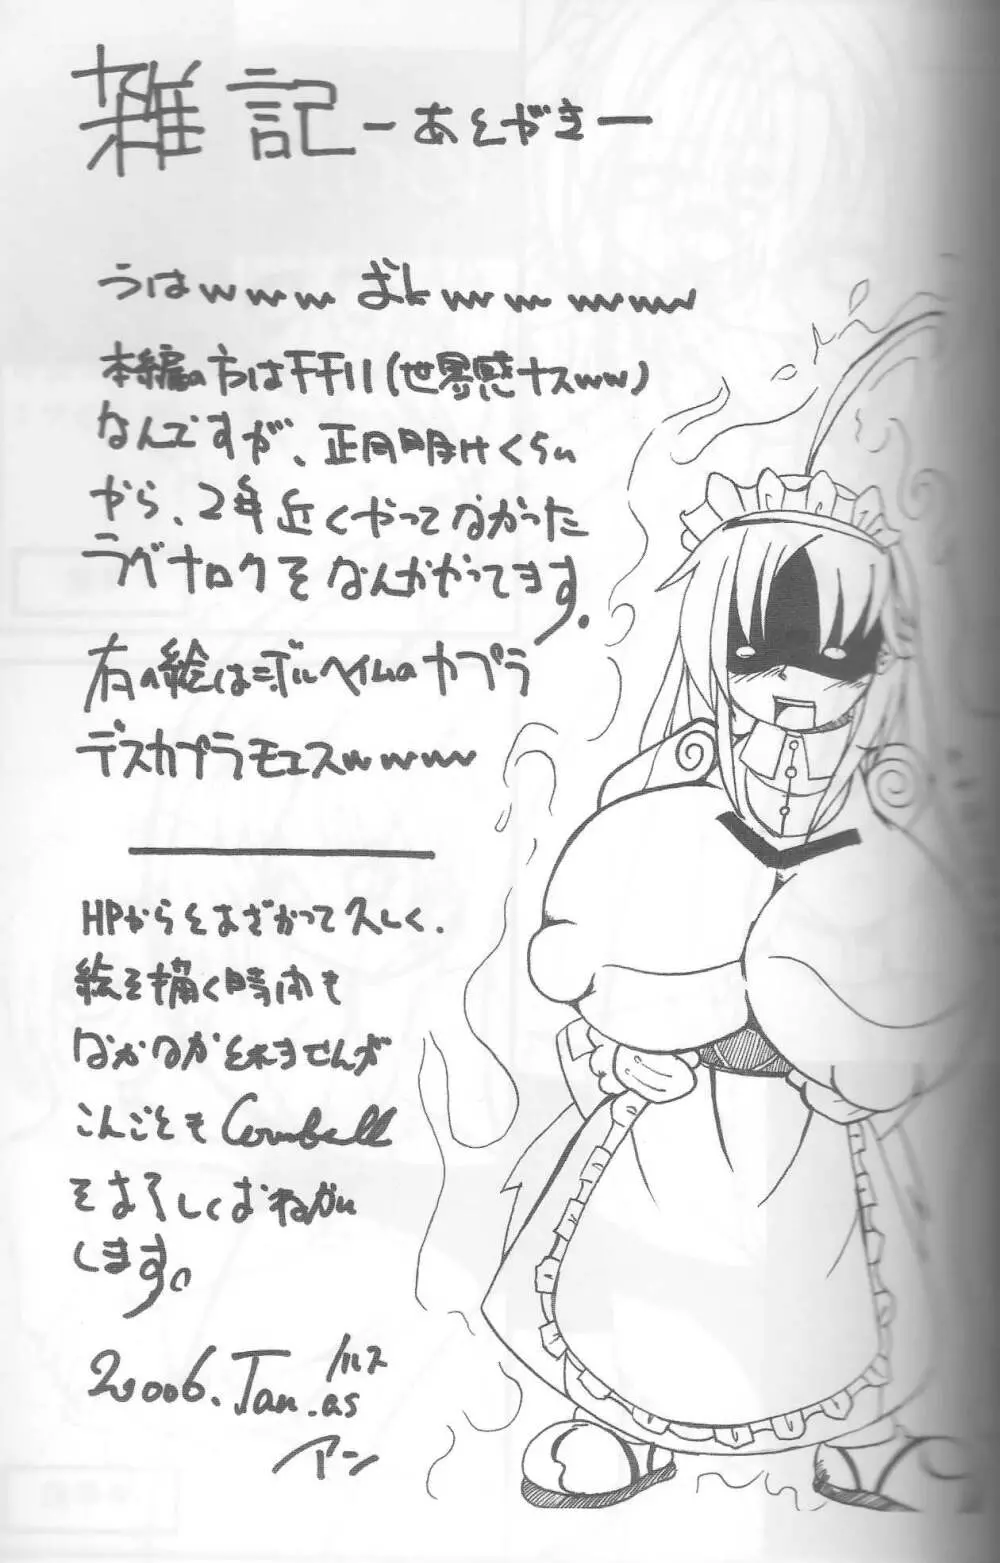 雑記 ーあとがきー
うはwww おkwwwwww
本編の方はFF11(世界感ナスww)
なんですが、正月明けくらい
から、2年近くやってなかった
ラグナロクをなんかやってます。
右の絵はニブルヘイムのカプラ
デスカプラモエスwwww
HPからとおざかって久しく、
絵を描く時間も
なかなかとれませんが
こんごとも
をよろしくおねがい
します。
2006.Jan.as
アン